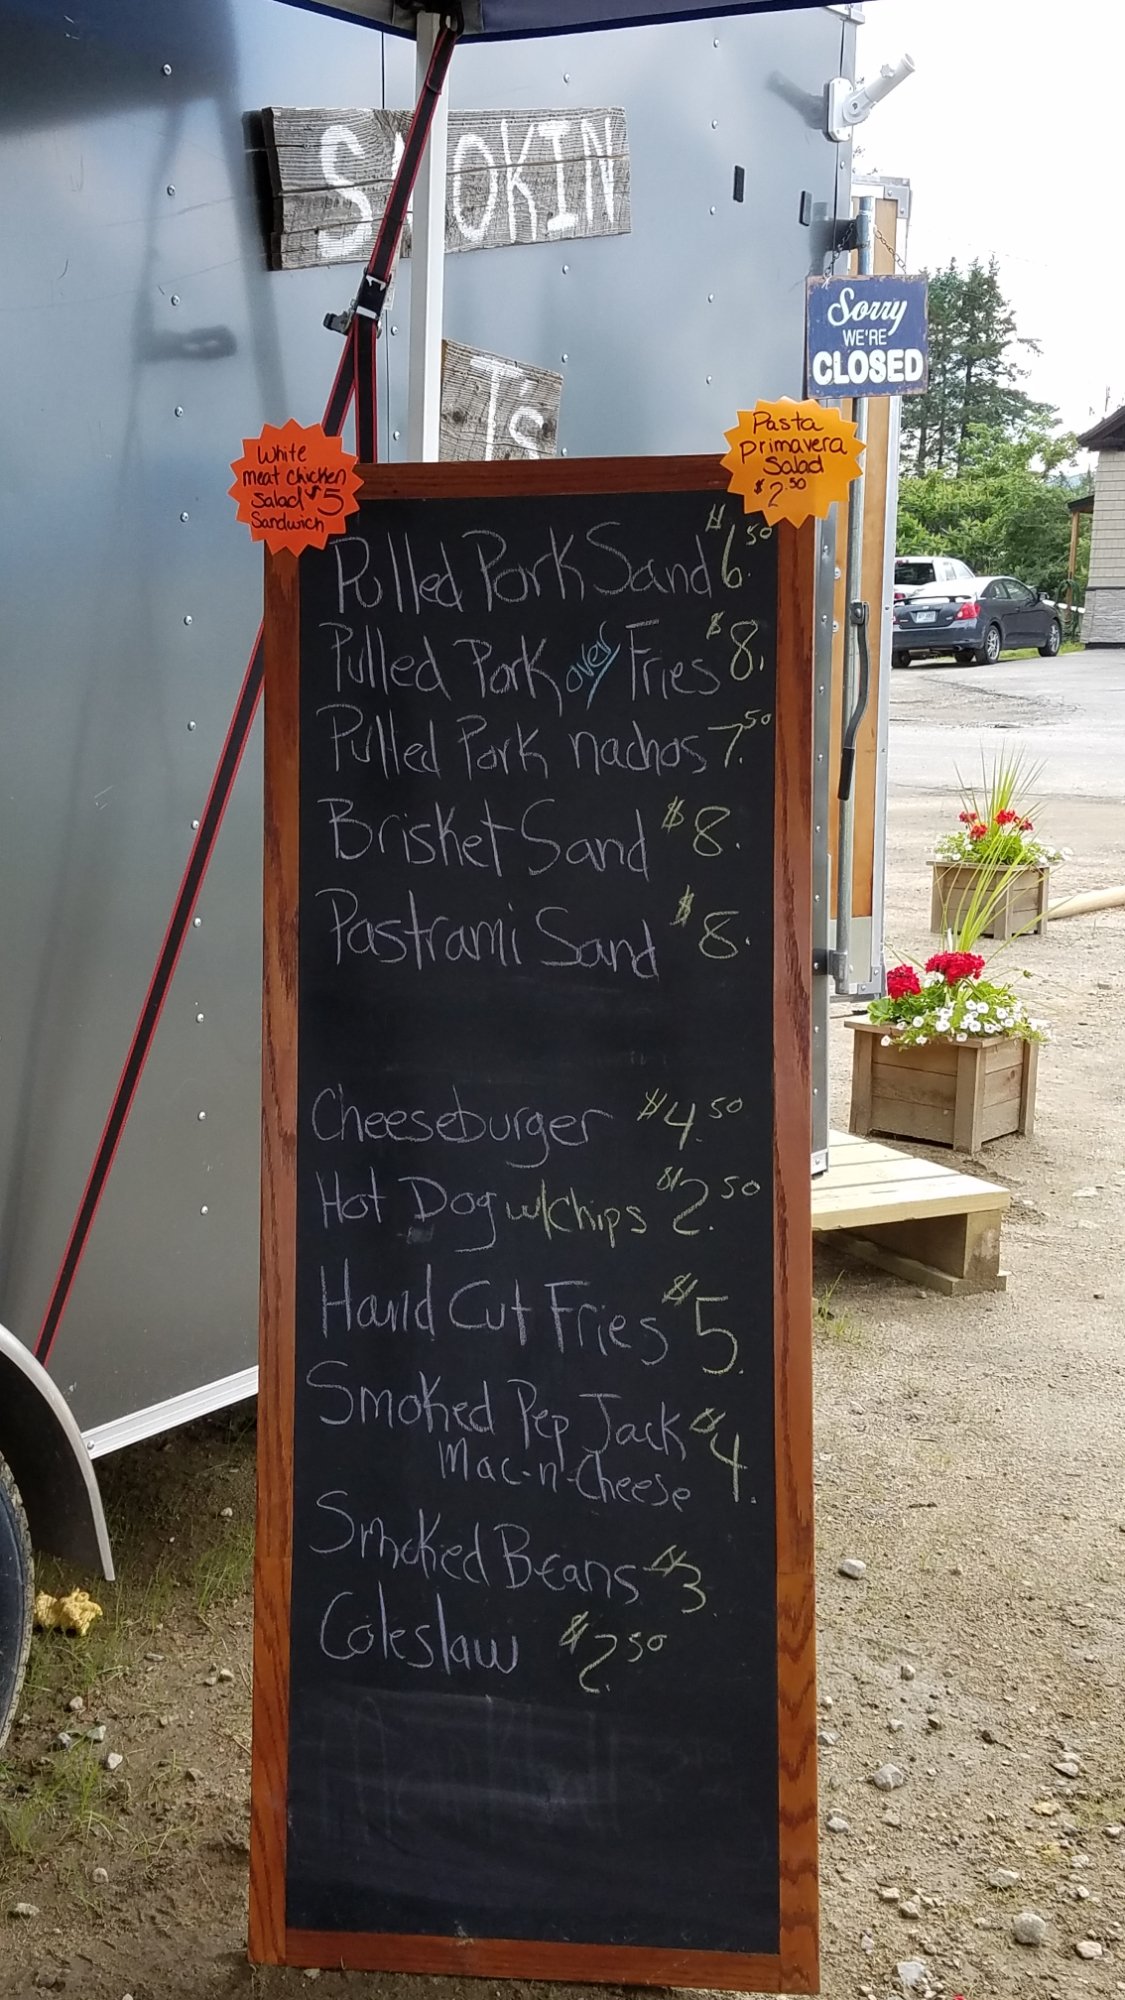 SMOKIN
T's
Sorry
WE'RE
CLOSED
White
meat chicken
Salad $5
Sandwich
Pasta
primavera
Salad
$2.50
Pulled Pork Sand $6.50
Pulled Pork over Fries $8.
Pulled Pork nachos 7.50
Brisket Sand $8.
Pastrami Sand $8.
Cheeseburger $4.50
Hot Dog w/Chips $2.50
Hand Cut Fries $5.
Smoked Pep Jack $4.
Mac-n-Cheese
Smoked Beans $3.
Coleslaw $2.50